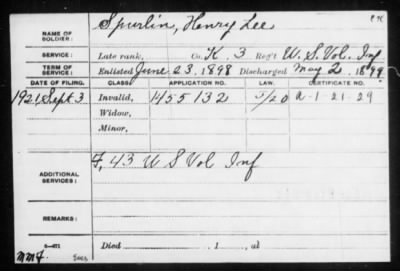 Spurlin, Henry Lee
NAME OF SOLDIER:
SERVICE: Late rank, Co. K, 3 Reg't U. S. Vol. Inf
TERM OF SERVICE: Enlisted June 23, 1898 Discharged May 2, 1899
DATE OF FILING. CLASS. APPLICATION NO. LAW. CERTIFICATE NO.
1921 Sept 3 Invalid, 1455132 5/20 A-1-21-29
Widow,
Minor,
F, 43 U S Vol Inf
ADDITIONAL SERVICES:
REMARKS:
Died , 1 , at